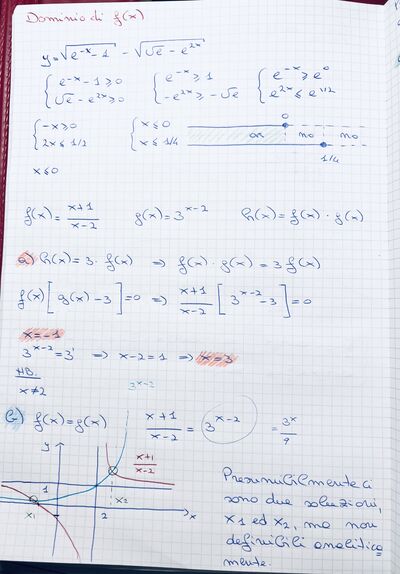 Dominio di f(x)
y = √(e^(-x) - 1) - √(√e - e^(2x))
{ e^(-x) - 1 ⩾ 0 { e^(-x) ⩾ 1 { e^(-x) ⩾ e^0
{ √e - e^(2x) ⩾ 0 { -e^(2x) ⩾ -√e { e^(2x) ⩽ e^(1/2)
0
{ -x ⩾ 0 { x ⩽ 0
ok no no
{ 2x ⩽ 1/2 { x ⩽ 1/4
1/4
x ⩽ 0
f(x) = (x+1)/(x-2) g(x) = 3^(x-2) h(x) = f(x) · g(x)
a) h(x) = 3 · f(x) ⇒ f(x) · g(x) = 3 f(x)
f(x) [ g(x) - 3 ] = 0 ⇒ (x+1)/(x-2) [ 3^(x-2) - 3 ] = 0
x = -1
3^(x-2) = 3^1 ⇒ x-2 = 1 ⇒ x = 3
NB.
x ≠ 2
3^(x-2)
b) f(x) = g(x) (x+1)/(x-2) = 3^(x-2) = 3^x/9
y
(x+1)/(x-2)
1
x1 2 x2 x
Presumibilmente ci
sono due soluzioni,
x1 ed x2, ma non
definibili analitica
mente.